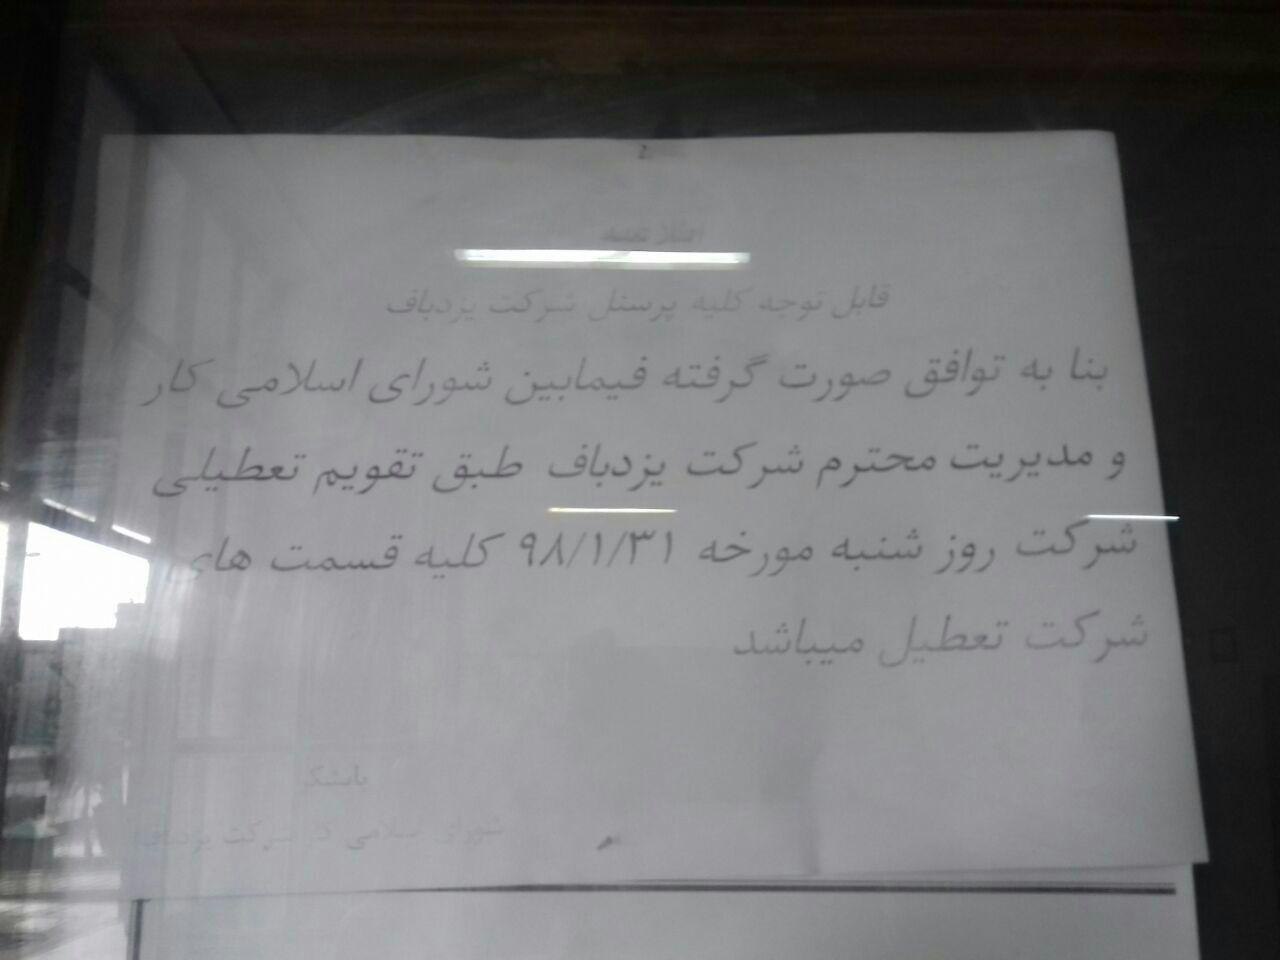 اطلاعیه
قابل توجه کلیه پرسنل شرکت یزدباف
بنا به توافق صورت گرفته فیمابین شورای اسلامی کار
و مدیریت محترم شرکت یزدباف طبق تقویم تعطیلی
شرکت روز شنبه مورخه ۹۸/۱/۳۱ کلیه قسمت های
شرکت تعطیل میباشد
باتشکر
شورای اسلامی کار شرکت یزدباف